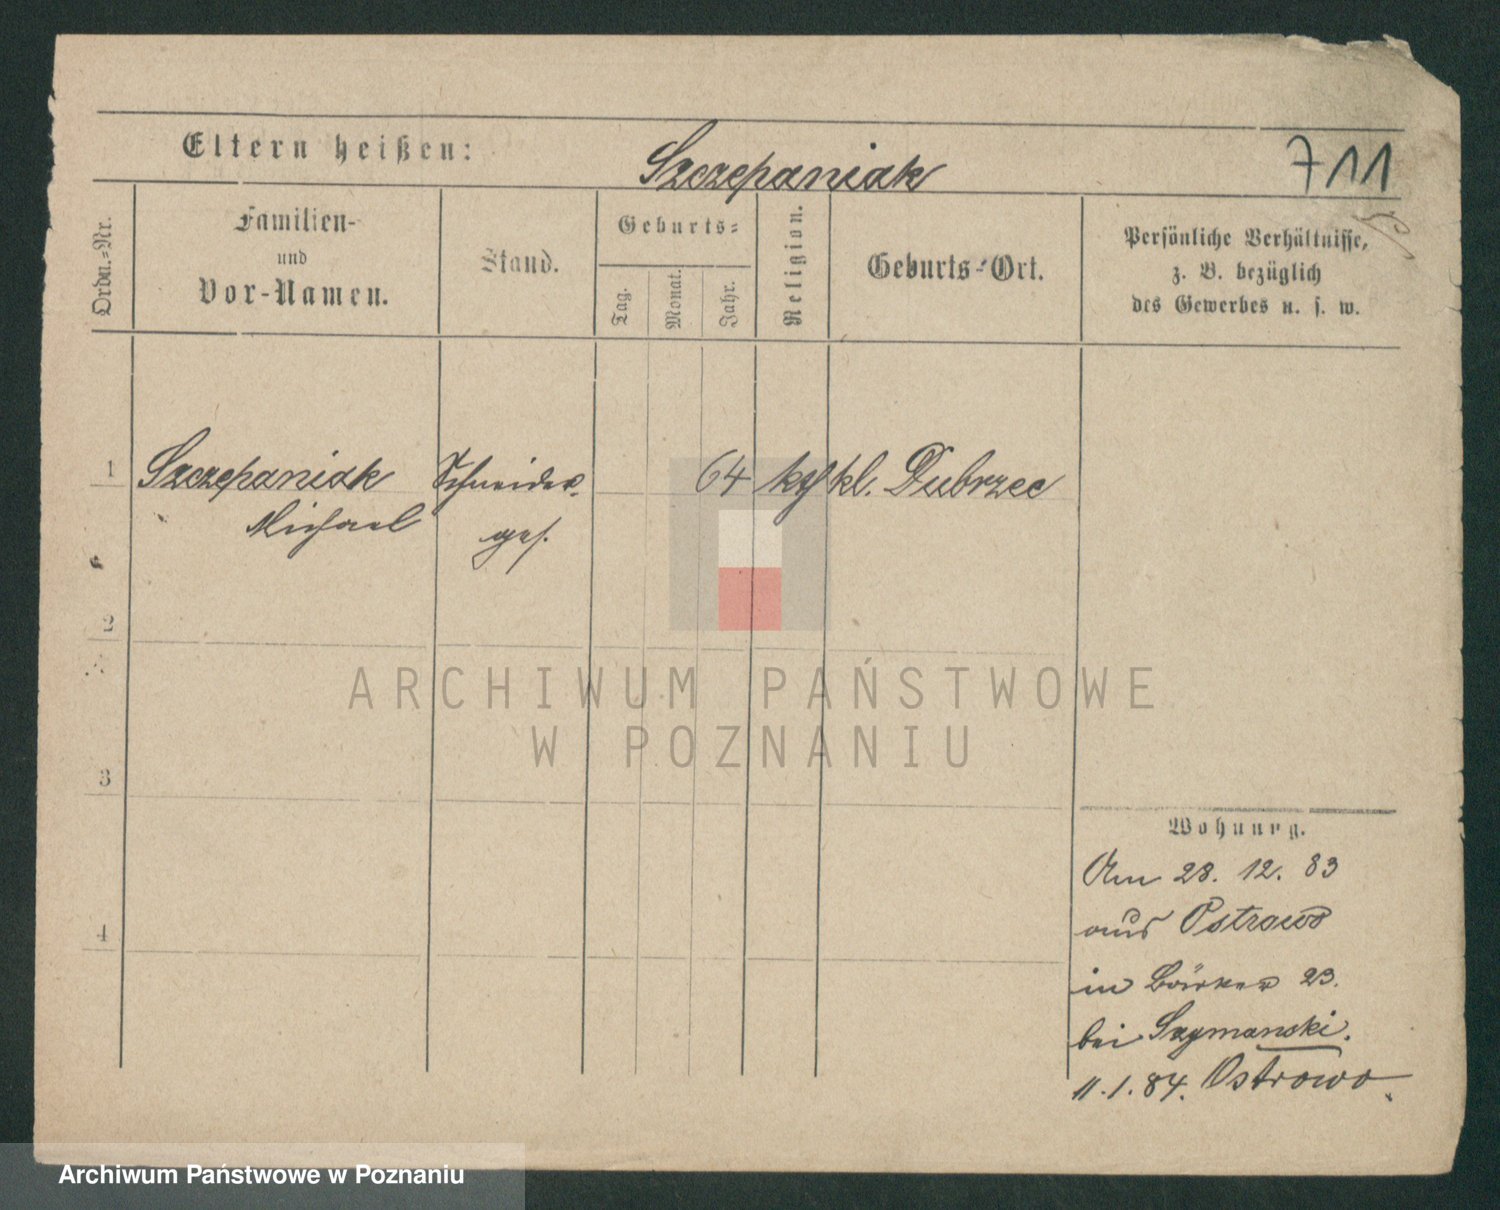 Eltern heißen: Szczepaniak 711
Ordn.=Nr.
Familien-
und
Vor-Namen.
Stand.
Geburts=
Tag.
Monat.
Jahr.
Religion.
Geburts=Ort.
Persönliche Verhältnisse,
z. B. bezüglich
des Gewerbes u. s. w.
1 Szczepaniak Schneider 64 kath kl. Dubrzec
Michael ges.
2
3
4
Wohnung.
Am 28. 12. 83
aus Ostrowo
in 23.
bei Szymanski.
11.1.84. Ostrowo
ARCHIWUM PAŃSTWOWE
W POZNANIU
Archiwum Państwowe w Poznaniu